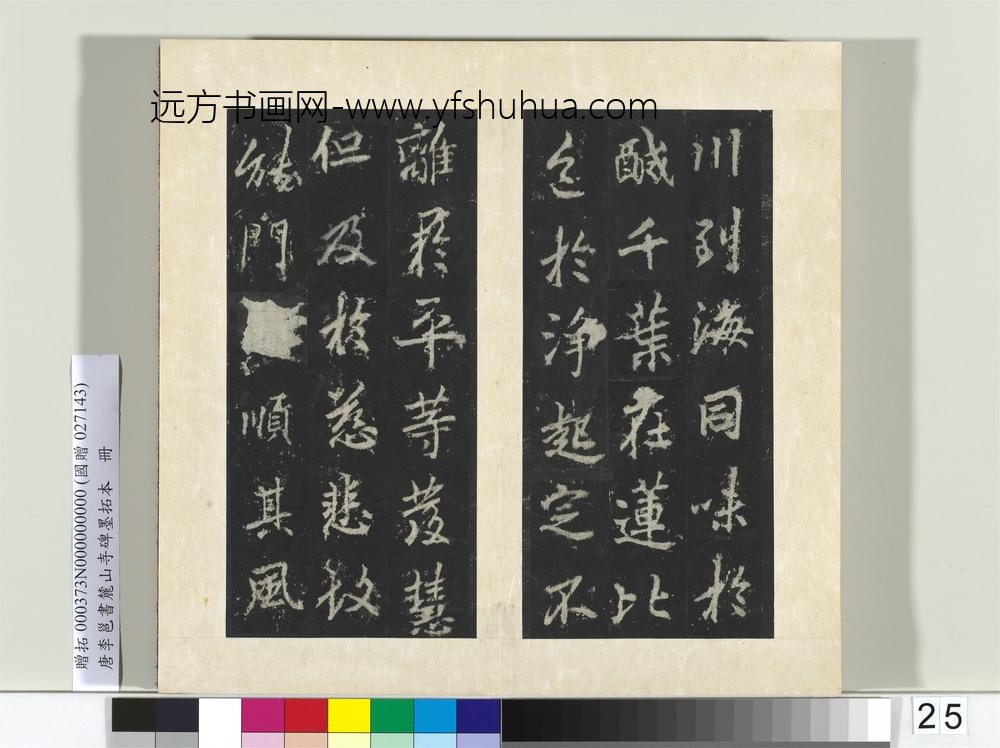 远方书画网-www.yfshuhua.com
川到海同味於
醎千葉在蓮比
色於淨起定不
離於平等發慧
但及於慈悲故
能門順其風
贈拓 000373N000000000 (國贈 027143)
唐李邕書麓山寺碑墨拓本 冊
25